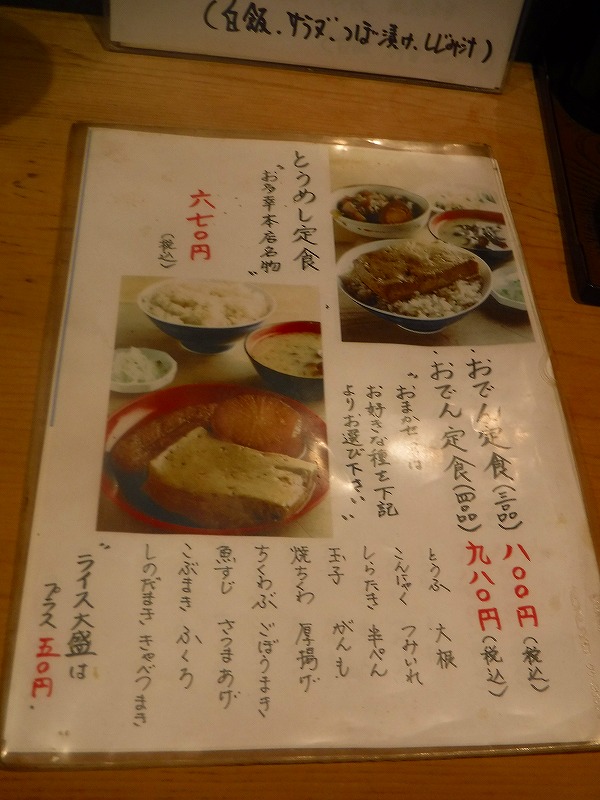 (白飯、サラダ、つぼ漬け、しじみ汁)
とうめし定食
"お多幸本店名物"
六七〇円
(税込)
・おでん定食(三品) 八〇〇円(税込)
・おでん定食(四品) 九八〇円(税込)
お好きな種を下記
よりお選び下さい"
とうふ 大根
こんにゃく つみいれ
しらたき 半ぺん
玉子 がんも
焼ちくわ 厚揚げ
ちくわぶ ごぼうまき
魚すじ さつまあげ
こぶまき ふくろ
しのだまき きゃべつまき
"ライス大盛は
プラス 五〇円.